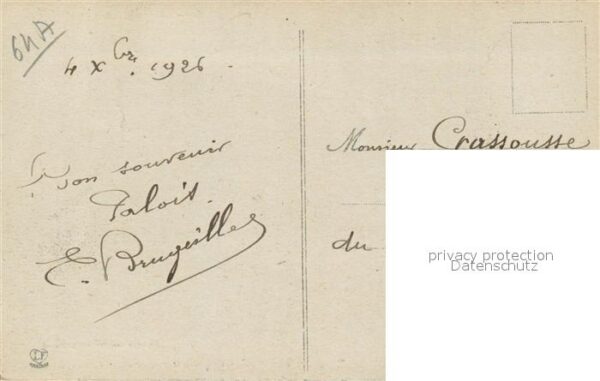 64A
4 Xbre 1926.
Bon souvenir
Palois.
E. Brugeilles
Monsieur Crassousse
du
privacy protection
Datenschutz